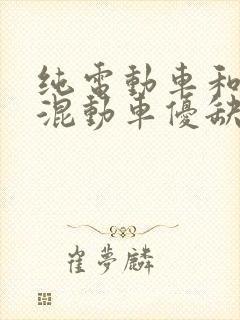 纯電動車和
混動車優缺
崔夢麟